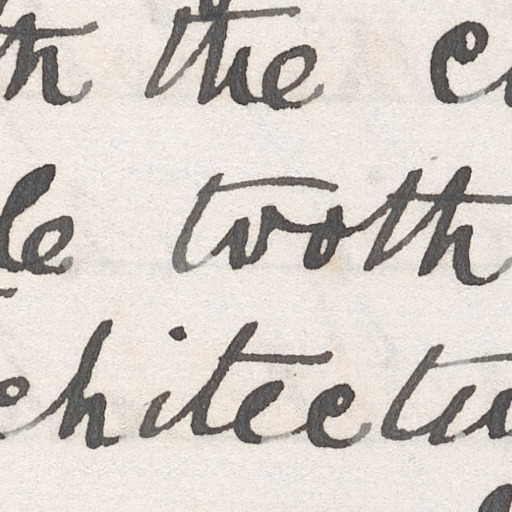 th the
le tooth
chitectu